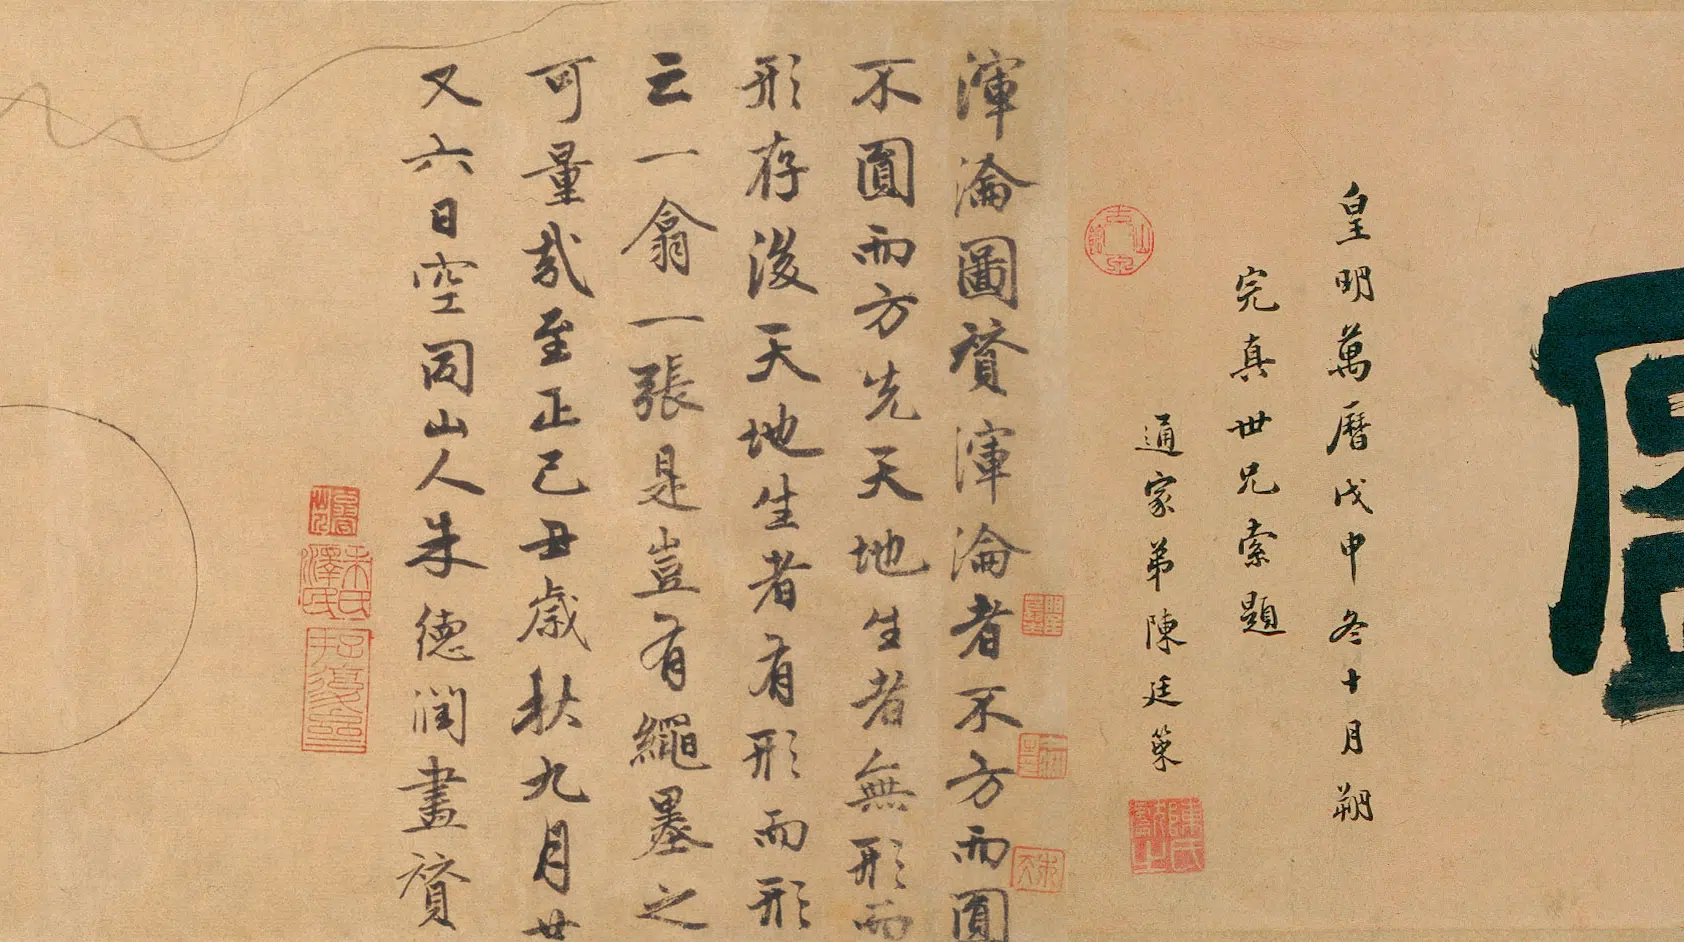 皇明萬曆戊申冬十月朔
完真世兄索題
通家弟陳廷策
渾淪圖贊渾淪者不方而圓
不圓而方先天地生者無形而
形存後天地生者有形而形
亡一翕一張是豈有繩墨之
可量哉至正己丑歲秋九月廿
又六日空同山人朱德潤畫贊
朱氏澤民